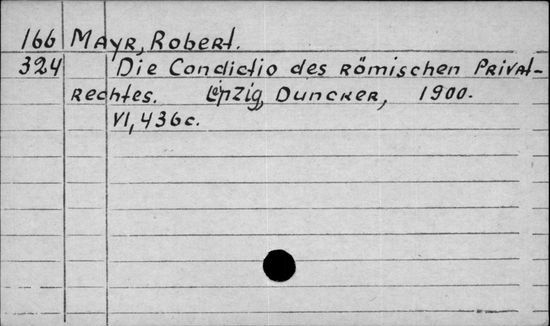 166 MAYR, Robert.
324 Die Condictio des Römischen Privat-
Rechtes. Lpzig, Duncker, 1900.
VI, 436c.